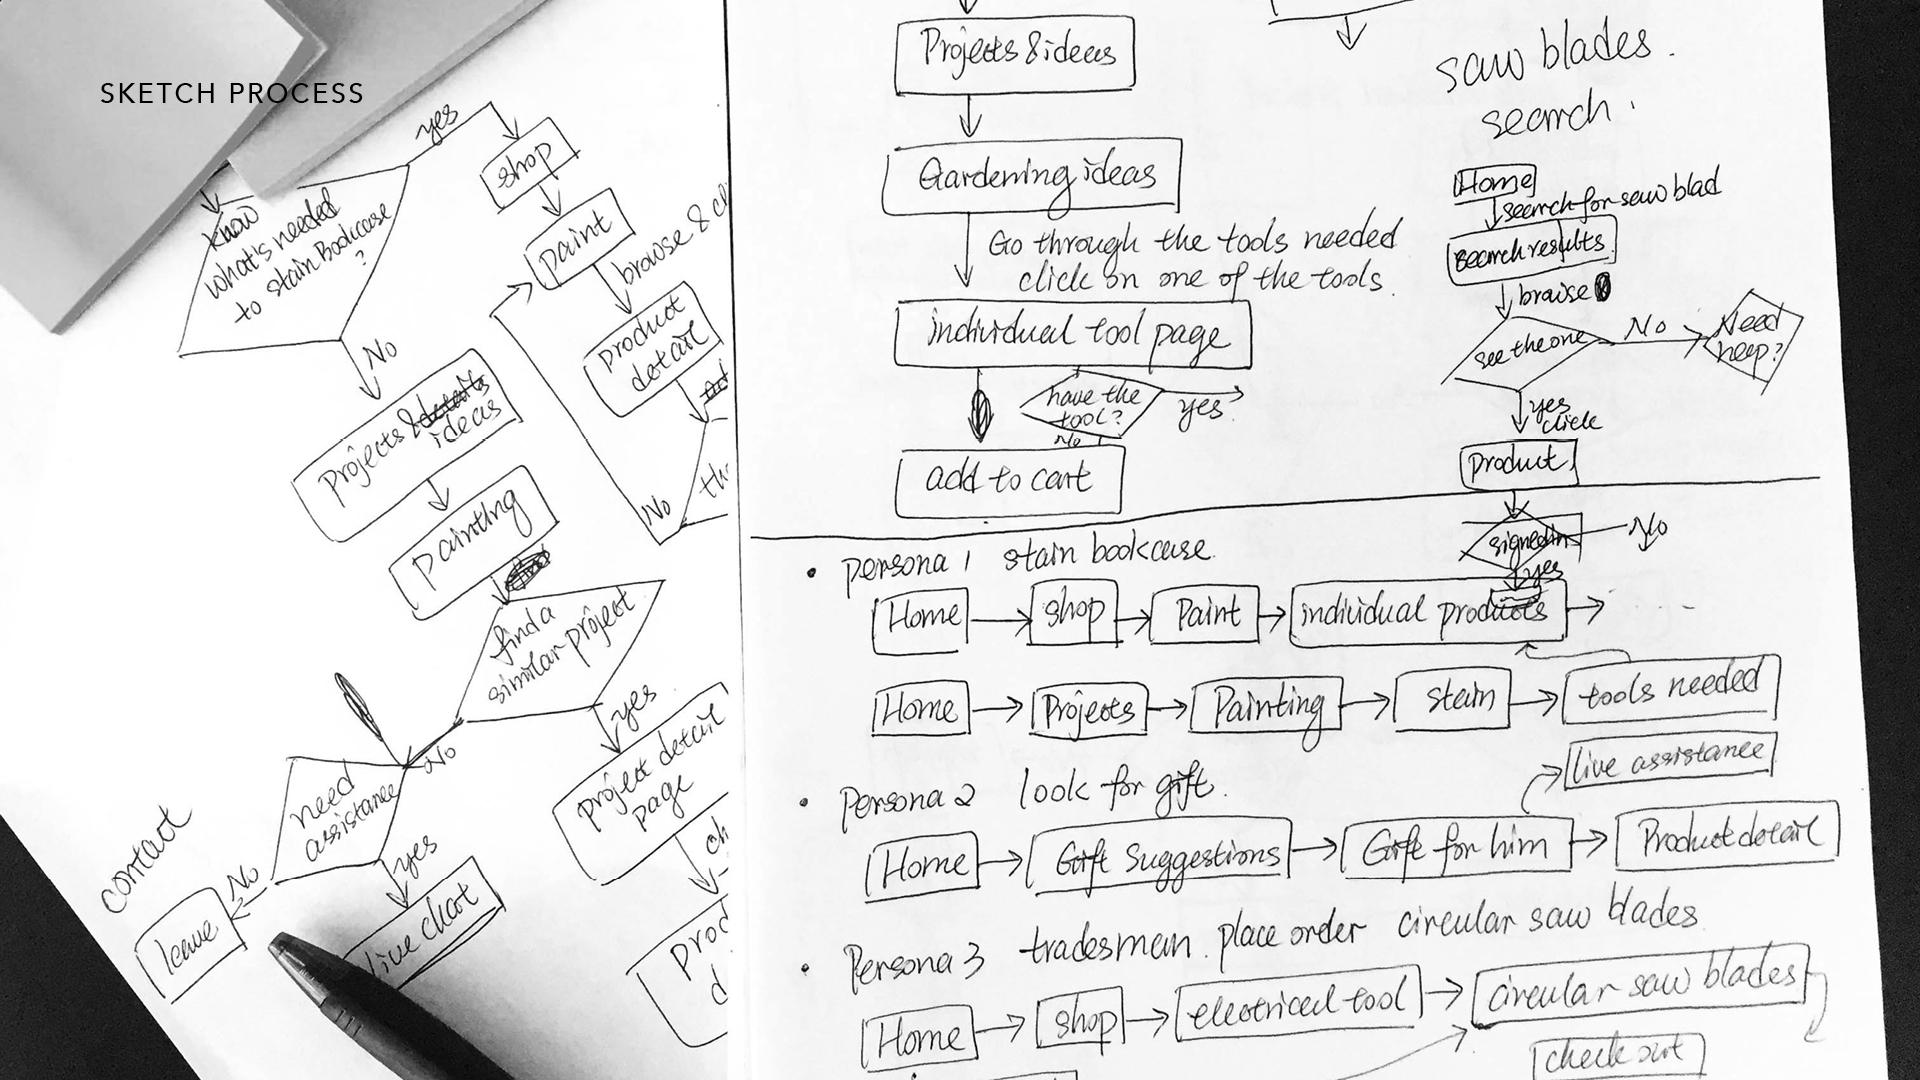 SKETCH PROCESS
yes
shop
know
what's needed
to stain Bookcase
?
paint
browse &
No
product
detail
Projects &
ideas
No
painting
find a
similar project
yes
No
project detail
page
need
assistance
yes
No
contact
leave
live chat
Projects & ideas
Gardening ideas
Go through the tools needed
click on one of the tools.
individual tool page
have the
tool?
yes
No
add to cart
saw blades.
search.
Home
search for saw blad
Search results
braise
see the one
No
Need
help?
yes
click
product
signed in
No
yes
• persona 1 stain bookcase.
Home
shop
Paint
individual products
Home
Projects
Painting
stain
tools needed
live assistance
• Persona 2 look for gift.
Home
Gift Suggestions
Gift for him
Product detail
• Persona 3 tradesman. place order circular saw blades
Home
shop
electriced tool
circular saw blades
check out